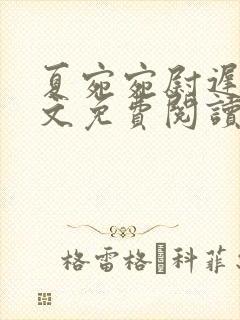 夏宛宛尉遲
文免費閱讀
格雷格·科菲